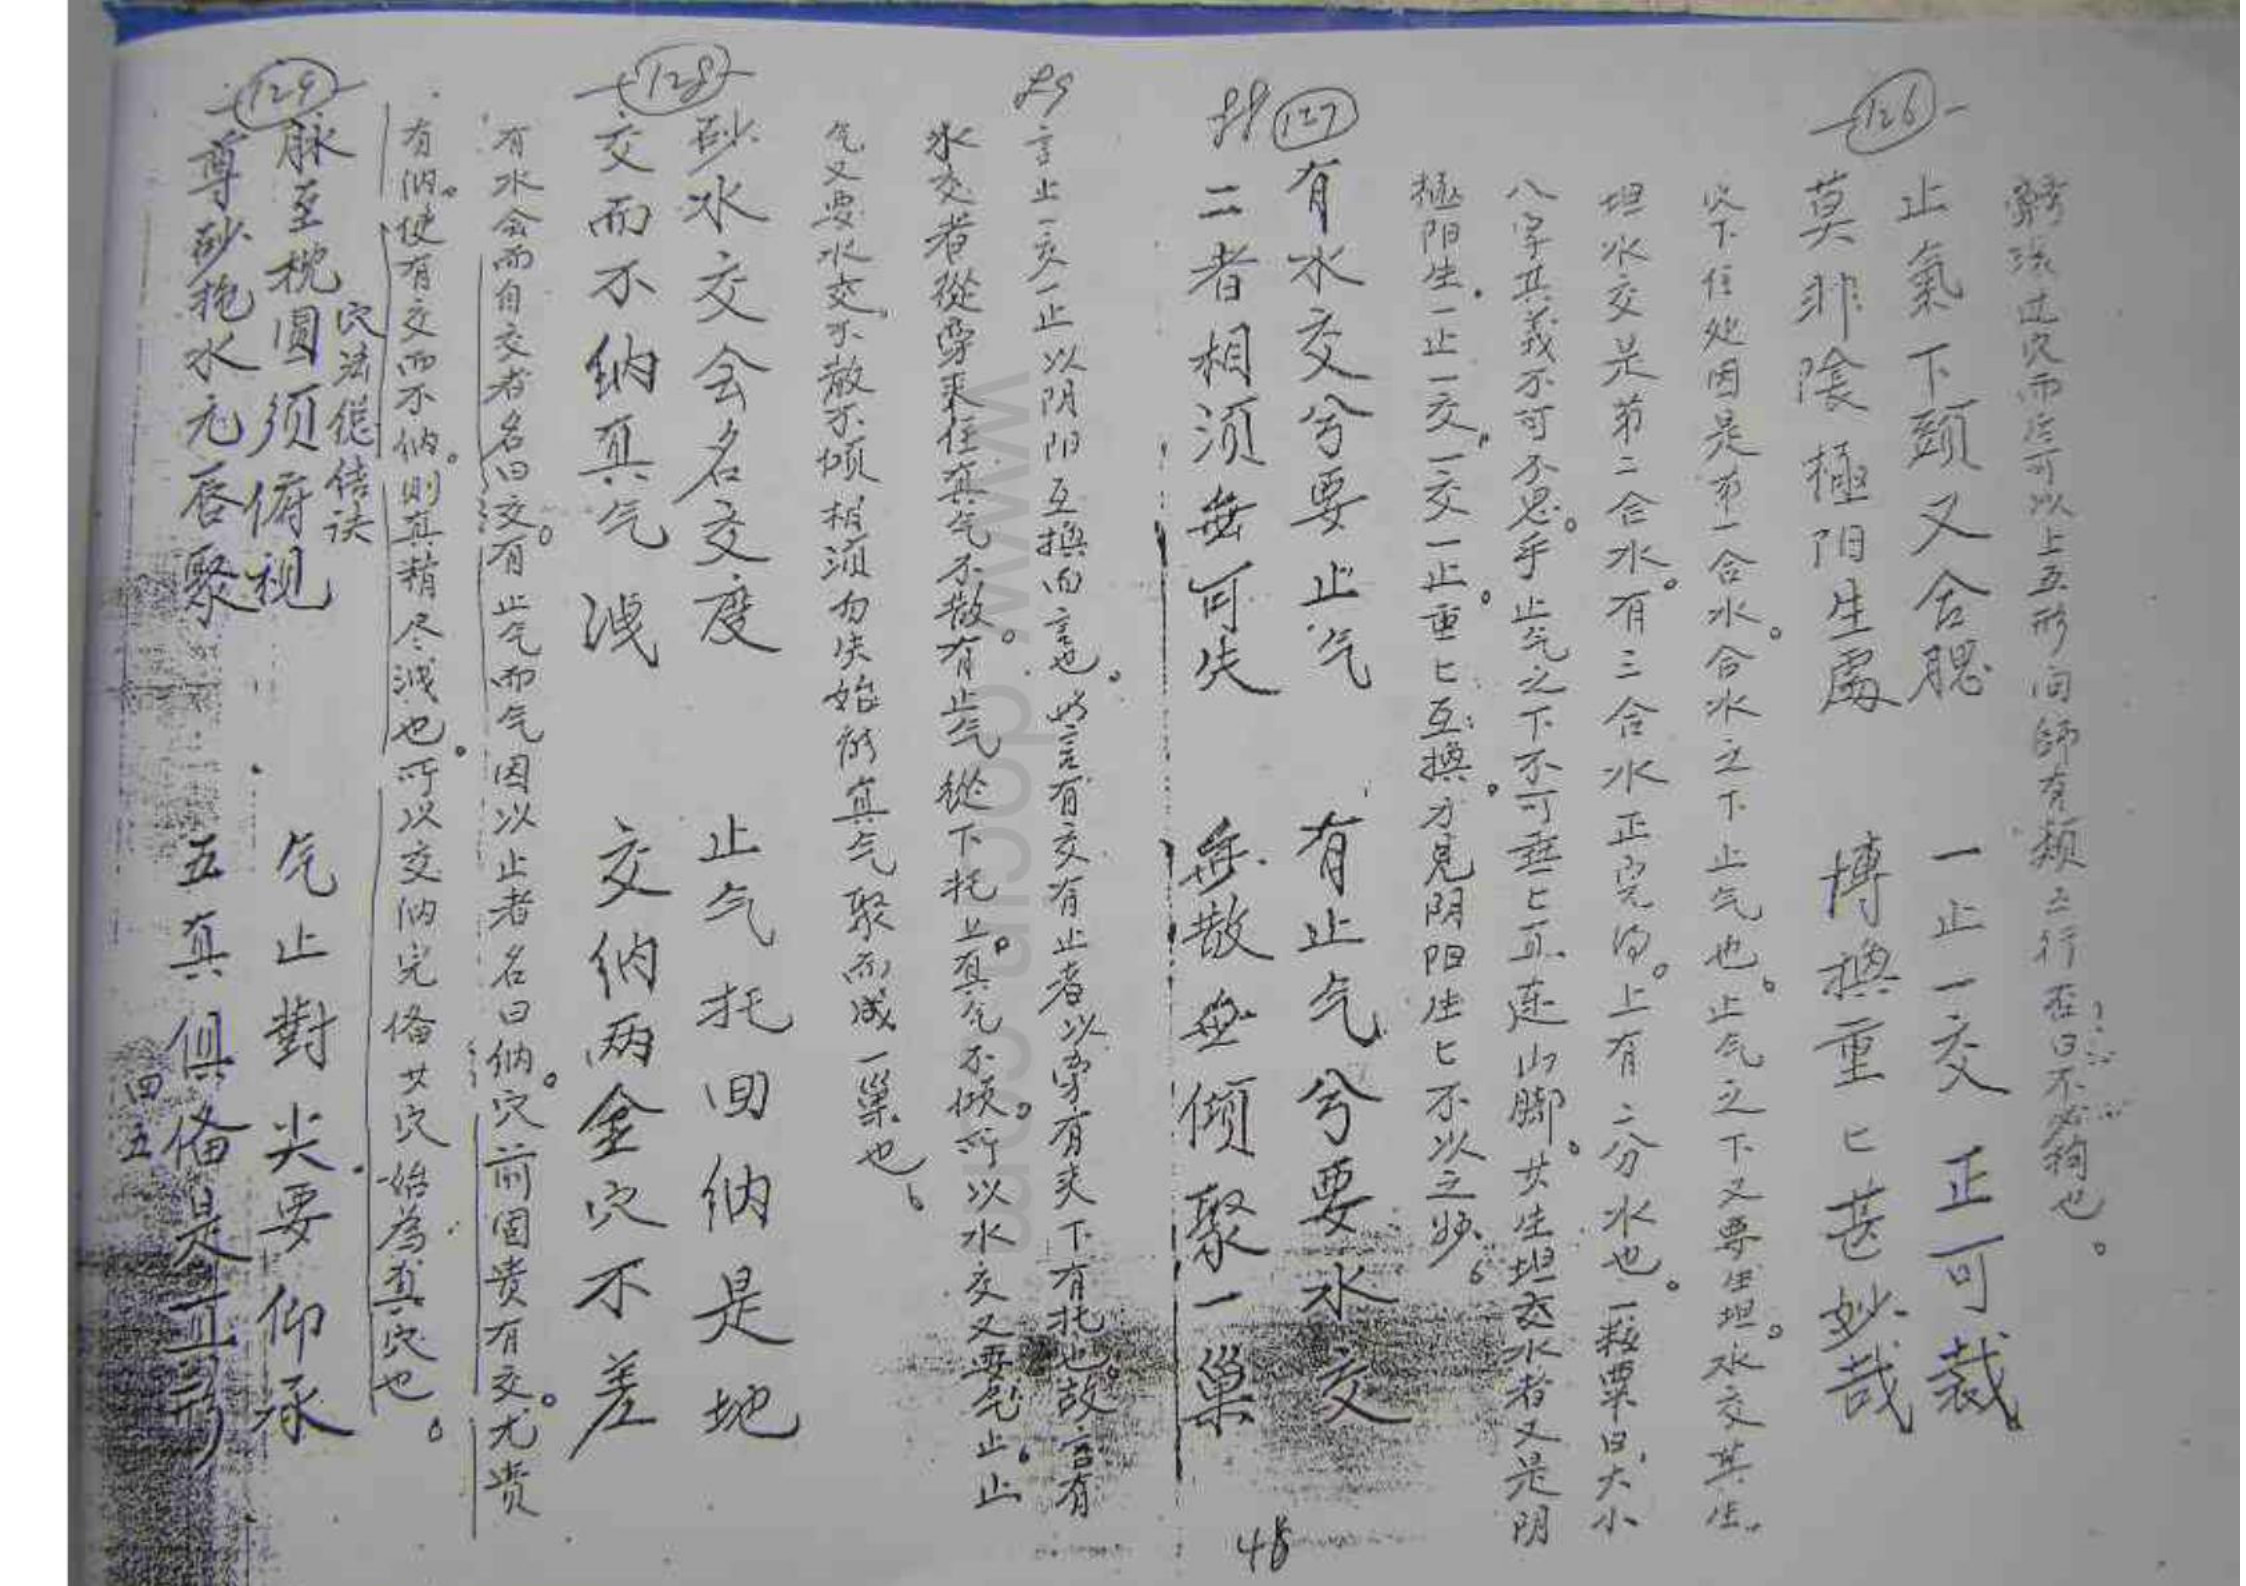 穴而后可以上五形问師有類五行 在日不必拘也。
126
止氣下頭又合腮 一止一交正可裁
莫非陰極阳生處 博換重匕甚妙哉
穴下住处因是第一合水。合水之下止气也。止气之下又要生坦。水交其生
坦水交是第二合水。有三合水正完的。上有二分水也。一粒粟曰,大小
八字其義不可不思。乎止气之下不可垂匕直连山脚。其生坦交水者又是阴
極阳生。一止一交,一交一止。重匕互換。方見阴阳生匕不以之妙。
127
有水交兮要止气 有止气兮要水交
88 二者相须無可失 無散無倾聚一巢
89 言止一交一止以阴阳互换而言也。此言有交有止者以穿有夹下有托也。故言有
水交者從穿来住真气不散。有止气從下托上。真气不倾。所以水交又要气止。止
气又要水交。不散不倾相须勿失始能真气聚而成一巢也。
128
砂水交会名交度 止气托回纳是地
交而不纳真气洩 交纳两全穴不差
有水会而自交者名曰交。有止气而气因以止者名曰纳。穴前固贵有交。尤贵
有纳。使有交而不纳。则真精尽洩也。所以交纳完俻其穴始為真穴也。
穴法总结诀
129
脉至枕圆须俯视 气止對尖要仰承
尊砂抱水元唇聚 五真俱俻是
四五
48
www.docriver.com